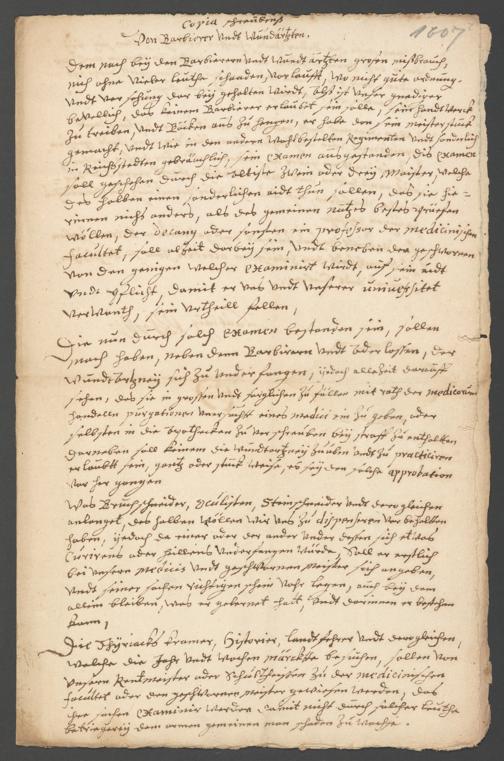 Copia schreibens
1607
Von Barbierer vndt wundärtzten.
Dem nach bey den Barbierern vndt wundtärtzten grosser mißbrauch,
nich ohne vieler leuthe schaden, vorlaufft, wo nicht gute ordnung
vndt ver dar bey gehalten wirdt, ist vnser gnediger
bevellich, das keinem Barbierer erlaubet sein solle, sein handtwerck
zu treiben, vndt Becken aus zu hengen, er habe den sein meister stuck
gemacht, vndt wie in den andern wohlbestelten Regimenten vndt sonderlich
in Reichsstedten gebreuchlich, sein Examen ausgestanden, dis Examen
soll geschehen durch die eltiste zwein oder drey Maister, welche
des halben einen sonderlichen aidt thun sollen, das sie hie-
rinnen nichs anders, als des gemeinen nutzes bestes
wöllen, der decany oder sonsten ein professor der medicinischen
facultet, soll alzeit darbey sein, vndt beneben den geschwornen
von den jenigen welcher Examinirt wirdt, auf sein aidt
vndt pflicht, damit er vns vndt vnserer universitet
verwanth, sein vrtheill fellen,
Die nun durch solch Examen bestanden sein, sollen
nach haben, neben denn Barbirern vndt oderlossen, der
wundtartzney sich zu vnderfangen, iedoch allezeit darauff
sehen, das sie in grossen vndt förglichen zu fellen mit rath der medicorum
handelln purgationes eines medici ein zu geben, oder
selbsten in die apothecken zu verschreiben bey straff zu enthalten
darneben soll keinem die wundtartzney zu üben vndt zu practiciren
erlaubt sein, gantz oder stuck weise, es sey den solche approbation
vor her gangen
Was Bruchschneider, Oculisten, Steinschneider vndt dergleichen
anlanget, des halben wöllen wir vns zu dispensiren vorbehalten
haben, iedoch da einer oder der ander vnder dessen sich etwas
Curirens oder hillens vndersangen würde, Soll er erstlich
bei vnsern Medicis vndt geschwornen Meister sich angeben,
vndt seiner sachen richtigen schein vohr legen, auch bey dem
allein bleiben, was er gelernet hatt, vndt darinnen er bestehen
kann,
Die Thyriacks kramer, landtfehrer vndt dergleichen,
welche die Jahr vndt wochen märckte besuchen, sollen von
vnsern Rentmeister oder Schultheissen zu der medicinischen
facultet oder den geschwornen meister gewiesen werden, das
ihre sachen Examinirt werden damit nicht durch solcher leuthe
betriegerey dem armen gemeinen man schaden zu wachse.